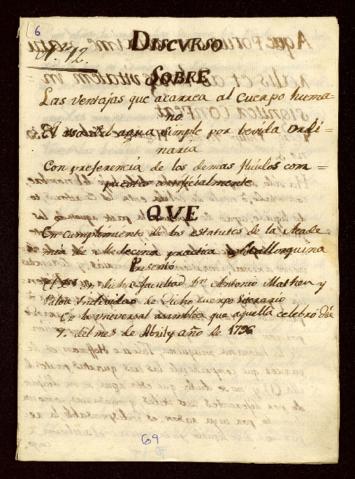 6
Nº. 12.
DISCVRSO
SOBRE
Las ventajas que acarrea al Cuerpo huma
no
El usar del agua simple por bevida ordi
naria
Con preferencia de los demas fluidos com
puestos artificialmente
QVE
En cumplimiento de los estatutos de la Acade
mia de Medecina practica
Presentó
en dicha facultad Dn. Antonio
Individuo de Dicho cuerpo literario
En la universal asamblea que aquella celebró dia
del mes de Abril y año de 1796
69